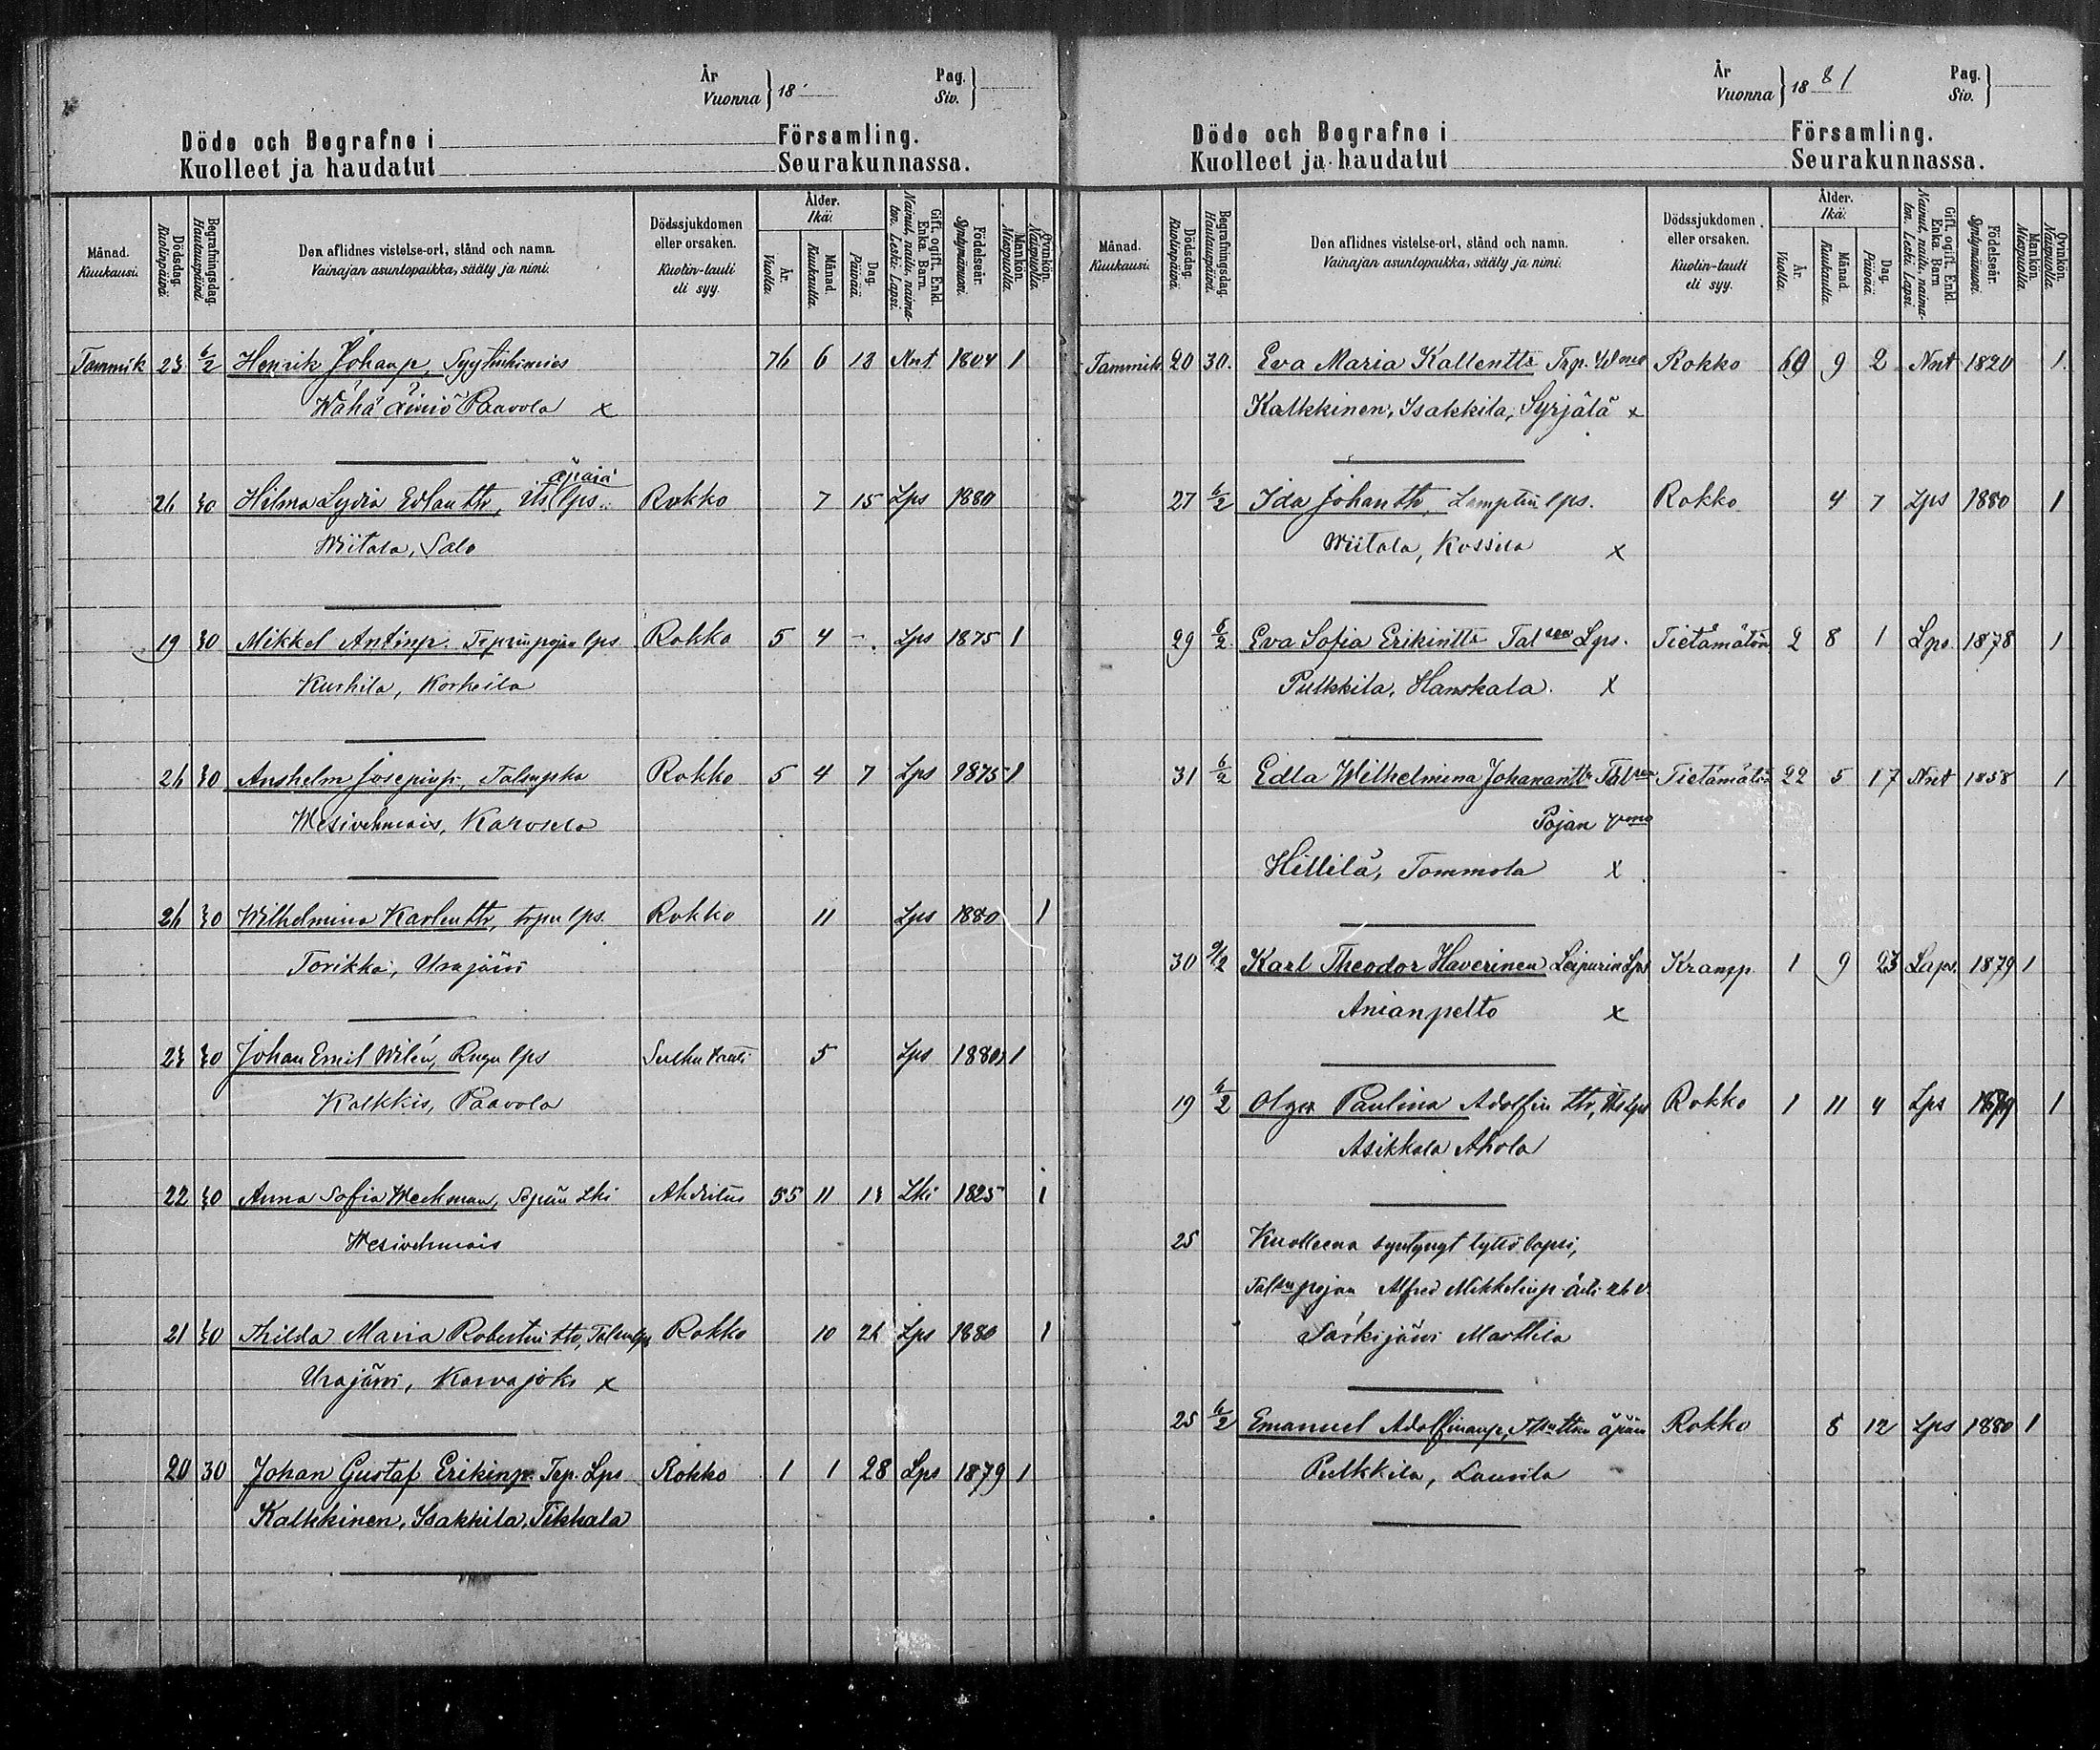 År
Vuonna } 18
Pag.
Siv. }
Döde och Begrafne i Församling.
Kuolleet ja haudatut Seurakunnassa.
Månad. Kuukausi.
Dödsdag. Kuolinpäivä.
Begrafningsdag. Hautauspäivä.
Den aflidnes vistelse-ort, stånd och namn.
Vainajan asuntopaikka, sääty ja nimi.
Dödssjukdomen eller orsaken.
Kuolin-tauti eli syy.
Ålder. Ikä.
År. Vuotta.
Månad. Kuukautta.
Dag. Päivää.
Gift, ogift. Enkl. Enka. Barn.
Nainut, naitu, naimaton. Leski. Lapsi.
Födelseår. Syntymävuosi.
Mankön. Miespuolia.
Qvinkön. Naispuolia.
Tammik 23 6/2 Henrik Johanp, Syytinkimies 76 6 13 Nnt 1804 1
Wähä Äiniö Paavola x
äpärä
26 30 Hilma Lydia Edlantr, its lps. Rokko 7 15 Lps 1880
Wiitala, Salo
19 30 Mikkel Antinp. lps Rokko 5 4 - Lps 1875 1
Kurhila, Korkeila
26 30 Anshelm Josepinp, Rokko 5 4 7 Lps 1875 1
Wesivehmais, Karosela
26 30 Wilhelmina Karlentr, trpn lps. Rokko 11 Lps 1880 1
Torikka, Urajärvi
23 30 Johan Emil Wilén, lps 5 Lps 1880 1
Kalkkis, Paavola
22 30 Anna Sofia Meckman, Sepän Lki Ahdistus 55 11 13 Lki 1825 1
Wesivehmais
21 30 Thilda Maria Robertintr, Rokko 10 26 Lps 1880 1
Urajärvi, Karvajoki x
20 30 Johan Gustaf Erikinp. Trp. Lps Rokko 1 1 28 Lps 1879 1
Kalkkinen, Isakkila, Tikkala
År
Vuonna } 18 81
Pag.
Siv. }
Döde och Begrafne i Församling.
Kuolleet ja haudatut Seurakunnassa.
Månad. Kuukausi.
Dödsdag. Kuolinpäivä.
Begrafningsdag. Hautauspäivä.
Den aflidnes vistelse-ort, stånd och namn.
Vainajan asuntopaikka, sääty ja nimi.
Dödssjukdomen eller orsaken.
Kuolin-tauti eli syy.
Ålder. Ikä.
År. Vuotta.
Månad. Kuukautta.
Dag. Päivää.
Gift, ogift. Enkl. Enka. Barn
Nainut, naitu, naimaton. Leski. Lapsi.
Födelseår. Syntymävuosi.
Mankön. Miespuolia.
Qvinkön. Naispuolia.
Tammik. 20 30. Eva Maria Kallentr Trp. Wmo Rokko 60 9 2 Nnt 1820 1.
Kalkkinen, Isakkila, Syrjälä x
27 6/2 Ida Johantr, Lampuin lps. Rokko 4 7 Lps 1880 1
Wiitala, Kossila x
29 6/2 Eva Sofia Erikintr Talsen Lps. Tietämätön 2 8 1 Lps. 1878 1
Pulkkila, Hanskala. x
31 6/2 Edla Wilhelmina Johanantr Talsen Tietämätön 22 5 17 Nnt 1858 1
Pojan Vmo
Hillilä, Tommola x
30 9/2 Karl Theodor Haverinen Leipurin Lps Kramp. 1 9 23 Laps. 1879 1
Anianpelto x
19 6/2 Olga Paulina Adolfintr, Its Lps Rokko 1 11 4 Lps 1879 1
Asikkala Ahola
25 Kuolleena syntynyt tyttö lapsi,
Talsnpojan Alfred Mikkelinp äiti 26 v.
Särkijärvi Marttila
25 6/2 Emanuel Adolfinanp, äpärä Rokko 8 12 Lps 1880 1
Pulkkila, Laurila